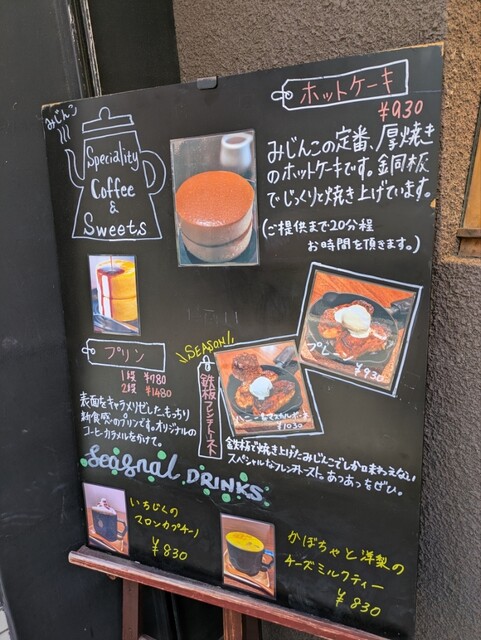 みじんこ
Speciality
Coffee
&
Sweets
ホットケーキ
¥930
みじんこの定番、厚焼き
のホットケーキです。銅板
でじっくりと焼き上げています。
(ご提供まで20分程
お時間を頂きます。)
プリン
1段 ¥780
2段 ¥1480
表面をキャラメリゼしたもっちり
新食感のプリンです。オリジナルの
コーヒーカラメルをかけて。
SEASON!!
プレーン
¥930
鉄板フレンチトースト
ハニー&マスカルポーネ
¥1030
鉄板で焼き上げたみじんこでしか味わえない
スペシャルなフレンチトースト。あつあつをぜひ。
Seasnal DRINKS
いちじくの
マロンカプチーノ
¥830
かぼちゃと洋梨の
チーズミルクティー
¥830